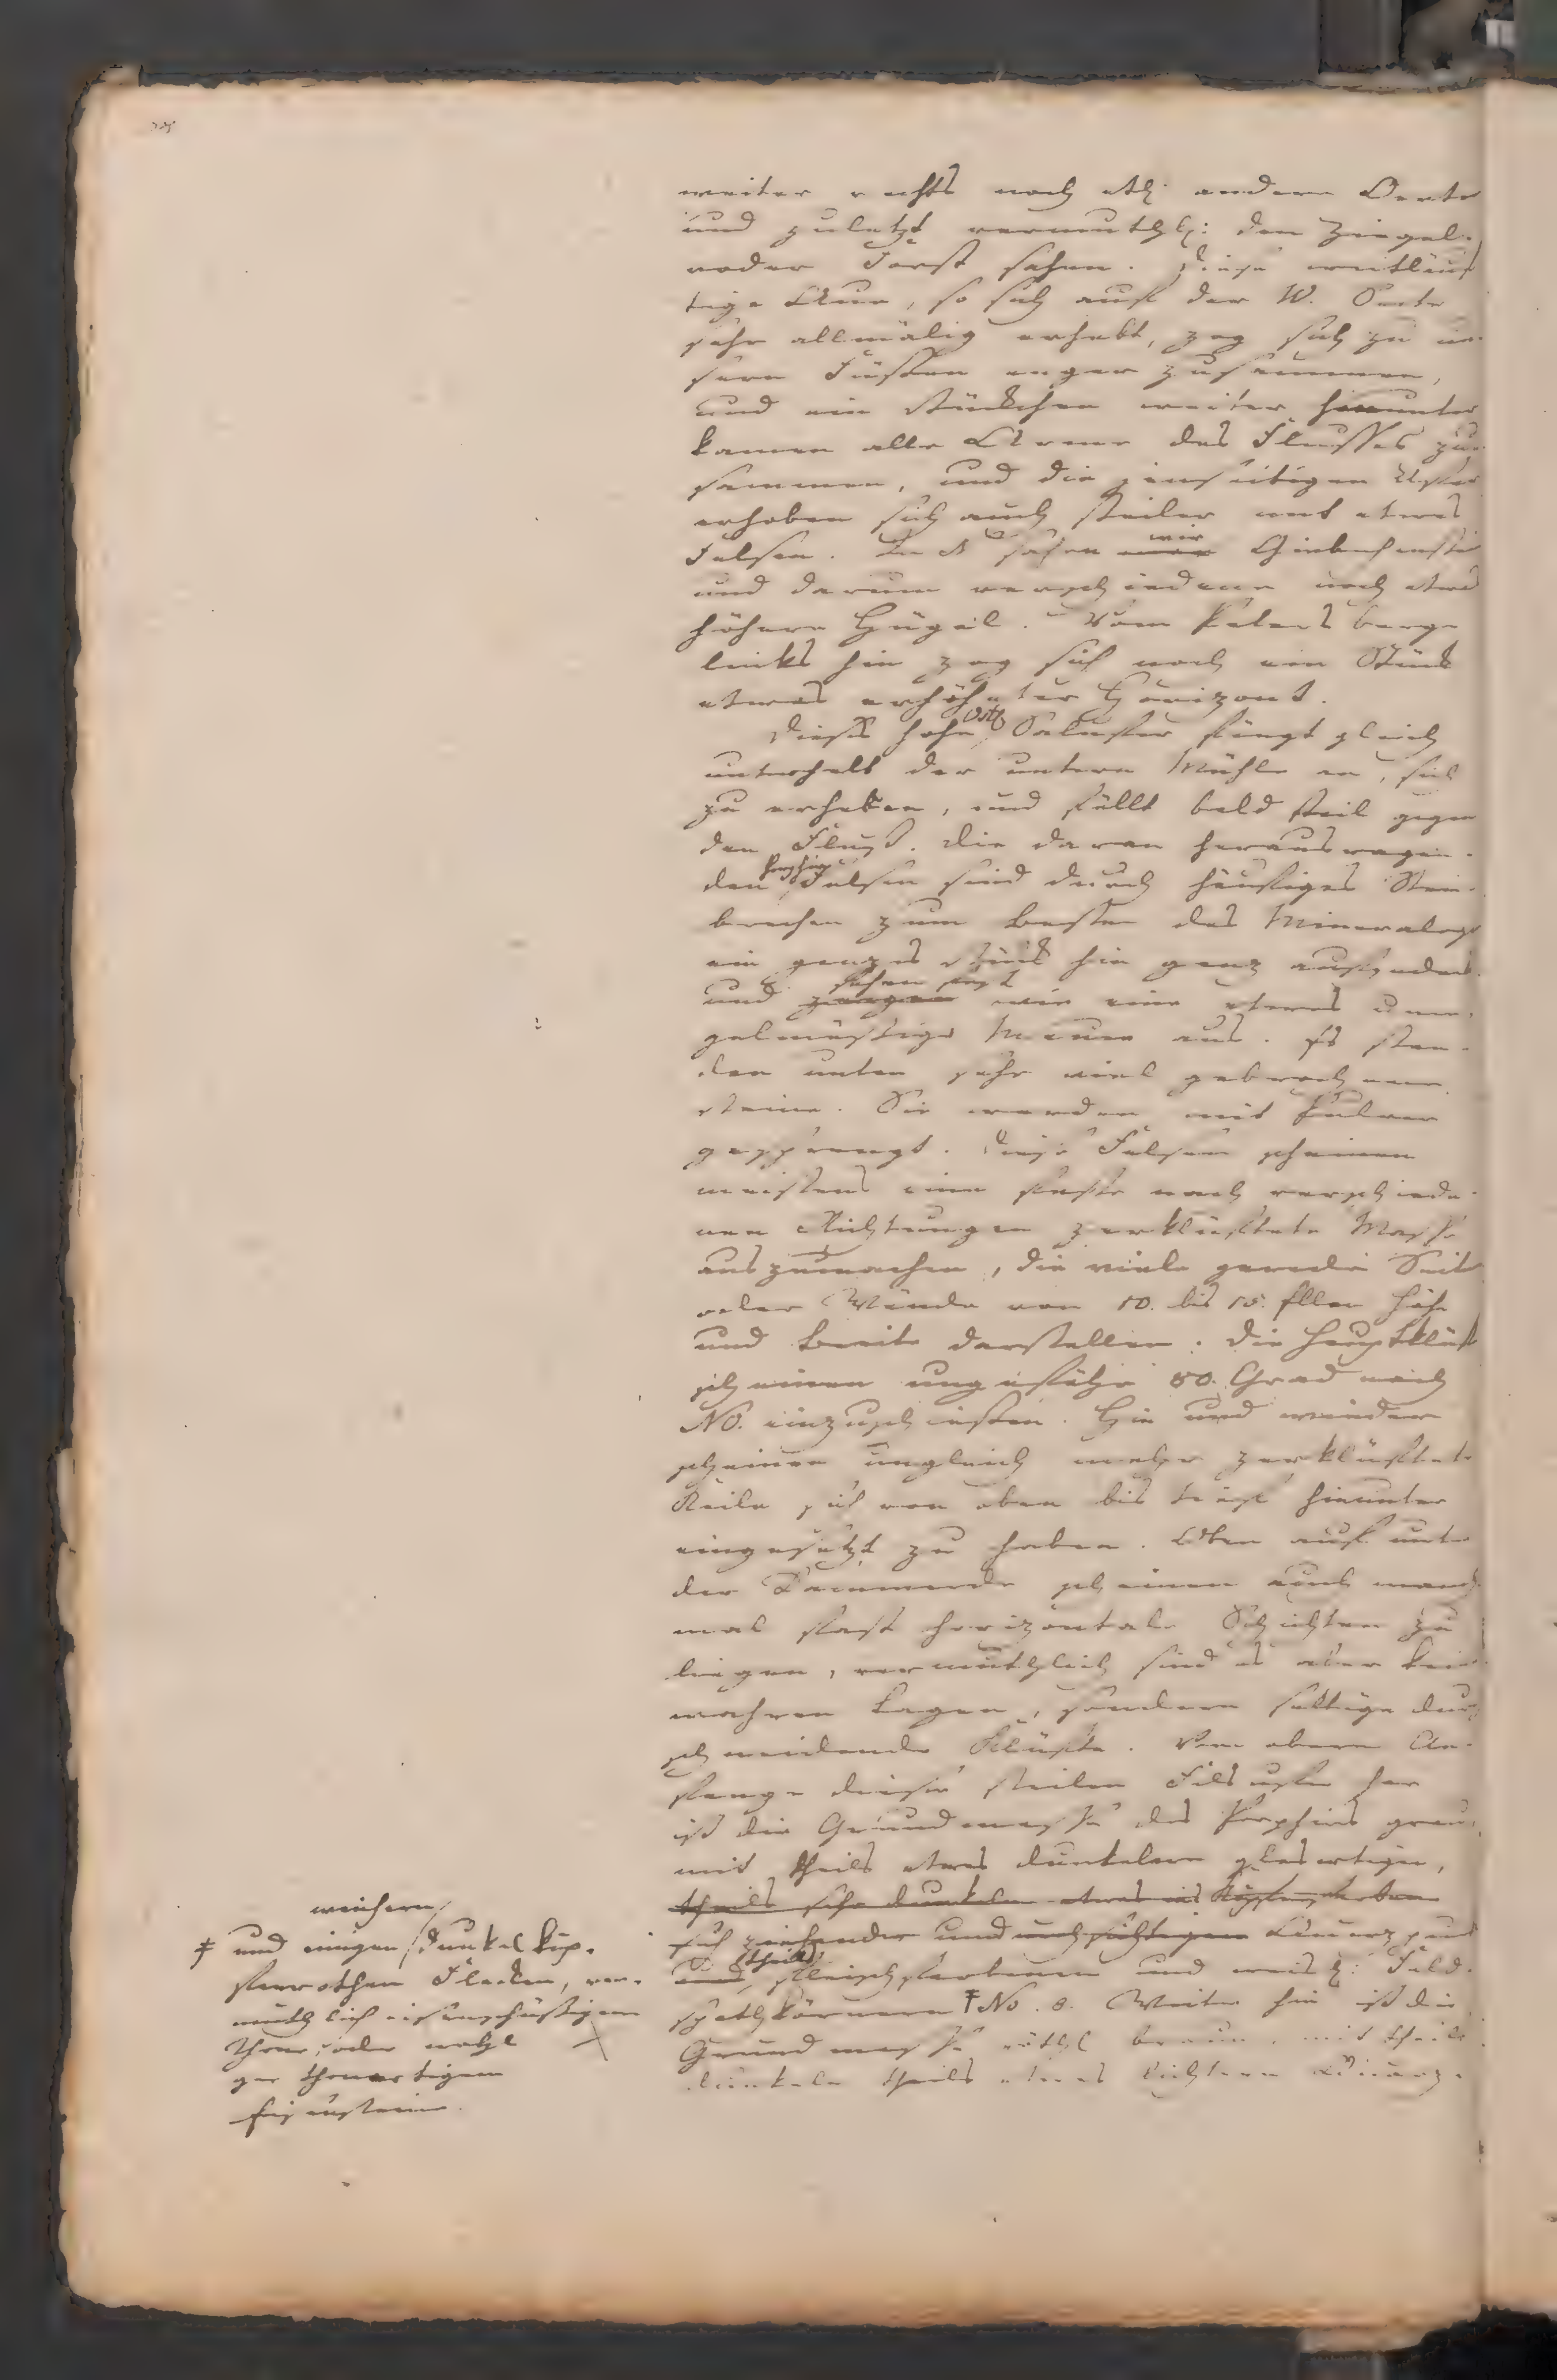 weiter rechts noch etl. andere Oerter
und zuletzt vermuthl: den Ziegel-
roder Forst sahen. Diese weitläuf
tige Aue, so sich auf der W. Seite
sehr allmälig erhebt, zog sich zu un-
sern Füssen enger zusammen,
und ein stückchen weiter herunter
kamen alle Arme des Flusses zu-
sammen, und die jenseitigen Ufer
erhoben sich auch steiler und etwas
Felsen. In N sahen wir Giebichenstei
und darum verschiedene noch etwas
höhere Hügel. Vom Petersberge
links hin zog sich noch ein Stück
etwas erhöhter Horizont.
Dieses hohe östl Saalufer fängt gleich
unterhalb der untern Mühle an, sich
zu erheben, und fällt bald steil gegen
den Fluß. Die daran herausragen-
den Porphir Felsen sind durch häufiges Stein-
brechen zum Besten des Mineralogen
ein ganzes stück hin ganz aufgedeckt
und sehen fast wie eine etwas unre-
gelmässige Mauer aus. Es stan-
den unten sehr viel gebrochene
steine. Sie werden mit Pulver
gesprengt. Diese Felsen scheinen
meistens eine feste nach verschiede-
nen Richtungen zerklüftete Masse
auszumachen, die viele gerade Seiten
oder Wände von 10. bis 15. Ellen Höhe
und Breite darstellen. Die Hauptklüft
scheinen ungefähr 80. Grad nach
NO. einzuschiessen. Hie und wieder
scheinen ungleich mehr zerklüftete
Keile sich von oben bis tief hinunter
eingesetzt zu haben. Oben auf unter
der Dammerde scheinen auch manch
mal fast horizontale Schichten zu
liegen, vermuthlich sind es aber keine
wahren Lagen, sondern söhlige durch
schneidende Klüfte. Vom obern An-
fange dieses steilen Felsufer her
ist die Grundmasse des Porphirs grau,
mit theils etwas dunkelern glasartigen,
theils sehr dunkeln etwas ins
sich ziehender und Quarz und
theils fleischfarbenen und weisl: Feld-
spathkörnern ‡ No. 8. Weiter hin ist die
Grundmasse röthl braun, mit theils
dunkeln theils etwas lichtern Quarz-
weichern
‡ und einigen dunkel kup-
ferrothen Flecken, ver-
muthlich eisenschüssigem
Thone, oder
thonartigem
Eisensteine.